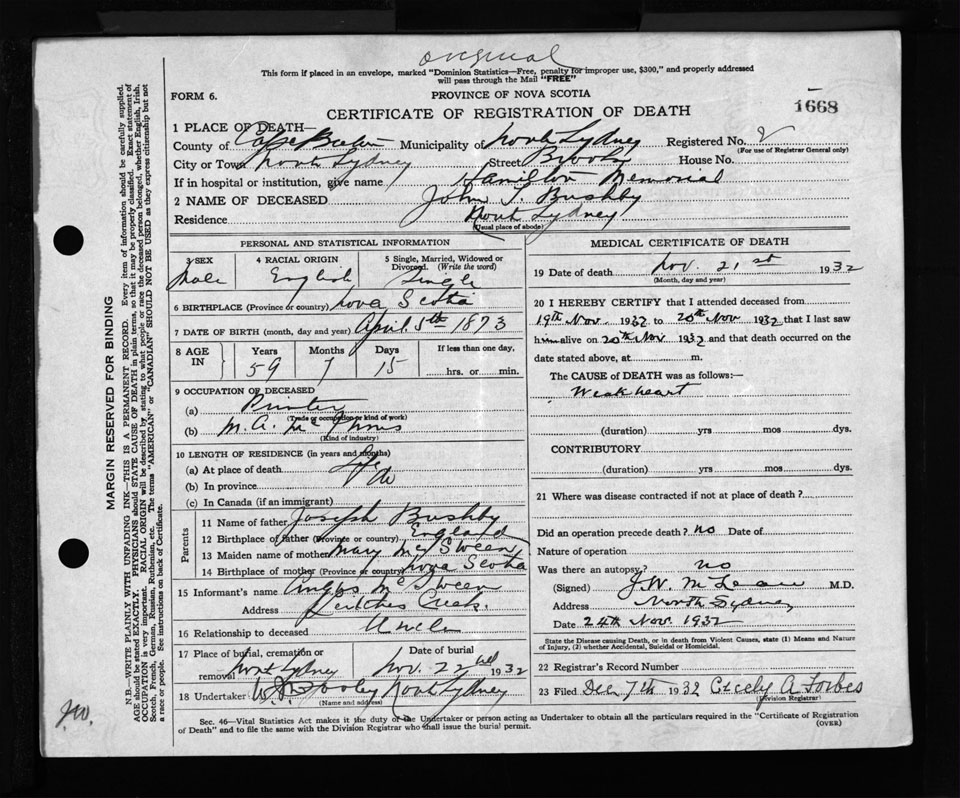 original
This form if placed in an envelope, marked "Dominion Statistics—Free, penalty for improper use, $300," and properly addressed
will pass through the Mail "FREE"
FORM 6.
PROVINCE OF NOVA SCOTIA
1668
CERTIFICATE OF REGISTRATION OF DEATH
1 PLACE OF DEATH—
County of Cape Breton Municipality of North Sydney Registered No.
(For use of Registrar General only)
City or Town North Sydney Street Brook House No.
If in hospital or institution, give name Hamilton Memorial
2 NAME OF DECEASED John T. Bushby
Residence North Sydney
(Usual place of abode)
PERSONAL AND STATISTICAL INFORMATION
3 SEX 4 RACIAL ORIGIN 5 Single, Married, Widowed or Divorced. (Write the word)
Male English Single
6 BIRTHPLACE (Province or country) Nova Scotia
7 DATE OF BIRTH (month, day and year) April 5th 1873
8 AGE IN Years Months Days If less than one day,
59 7 15 hrs. or min.
9 OCCUPATION OF DECEASED
(a) Printer
(Trade or occupation or kind of work)
(b) M.A.
(Kind of industry)
10 LENGTH OF RESIDENCE (in years and months)
(a) At place of death Life
(b) In province do
(c) In Canada (if an immigrant)
Parents
11 Name of father Joseph Bushby
12 Birthplace of father (Province or country) England
13 Maiden name of mother Mary McSween
14 Birthplace of mother (Province or country) Nova Scotia
15 Informant's name Angus McSween
Address Leitches Creek.
16 Relationship to deceased Uncle
17 Place of burial, cremation or removal Date of burial
North Sydney Nov. 22nd 1932
18 Undertaker Dooley North Sydney
MEDICAL CERTIFICATE OF DEATH
19 Date of death Nov. 21st 1932
(Month, day and year)
20 I HEREBY CERTIFY that I attended deceased from
19th Nov. 1932 to 20th Nov 1932 that I last saw
him alive on 20th Nov 1932 and that death occurred on the
date stated above, at m.
The CAUSE of DEATH was as follows:—
Weak heart
(duration) yrs mos dys.
CONTRIBUTORY
(duration) yrs mos dys.
21 Where was disease contracted if not at place of death?
Did an operation precede death? no Date of
Nature of operation
Was there an autopsy? no
(Signed) J.W. McLean M.D.
Address North Sydney
Date 24th Nov. 1932
State the Disease causing Death, or in death from Violent Causes, state (1) Means and Nature
of Injury, (2) whether Accidental, Suicidal or Homicidal.
22 Registrar's Record Number
23 Filed Dec 7th 1932 Cicely A Forbes
(Division Registrar)
Sec. 46—Vital Statistics Act makes it the duty of the Undertaker or person acting as Undertaker to obtain all the particulars required in the "Certificate of Registration
of Death" and to file the same with the Division Registrar who shall issue the burial permit.
(OVER)
MARGIN RESERVED FOR BINDING
N.B.—WRITE PLAINLY WITH UNFADING INK—THIS IS A PERMANENT RECORD. Every item of information should be carefully supplied.
AGE should be stated EXACTLY. PHYSICIANS should STATE CAUSE OF DEATH in plain terms, so that it may be properly classified. Exact statement of
OCCUPATION is very important. RACIAL ORIGIN will be described by stating to what people or race the deceased person belonged, whether English, Irish,
Scotch, French, German, Russian, Ruthenian, etc. The terms "AMERICAN" or "CANADIAN" SHOULD NOT BE USED as they express citizenship but not
a race or people. See instructions on back of Certificate.